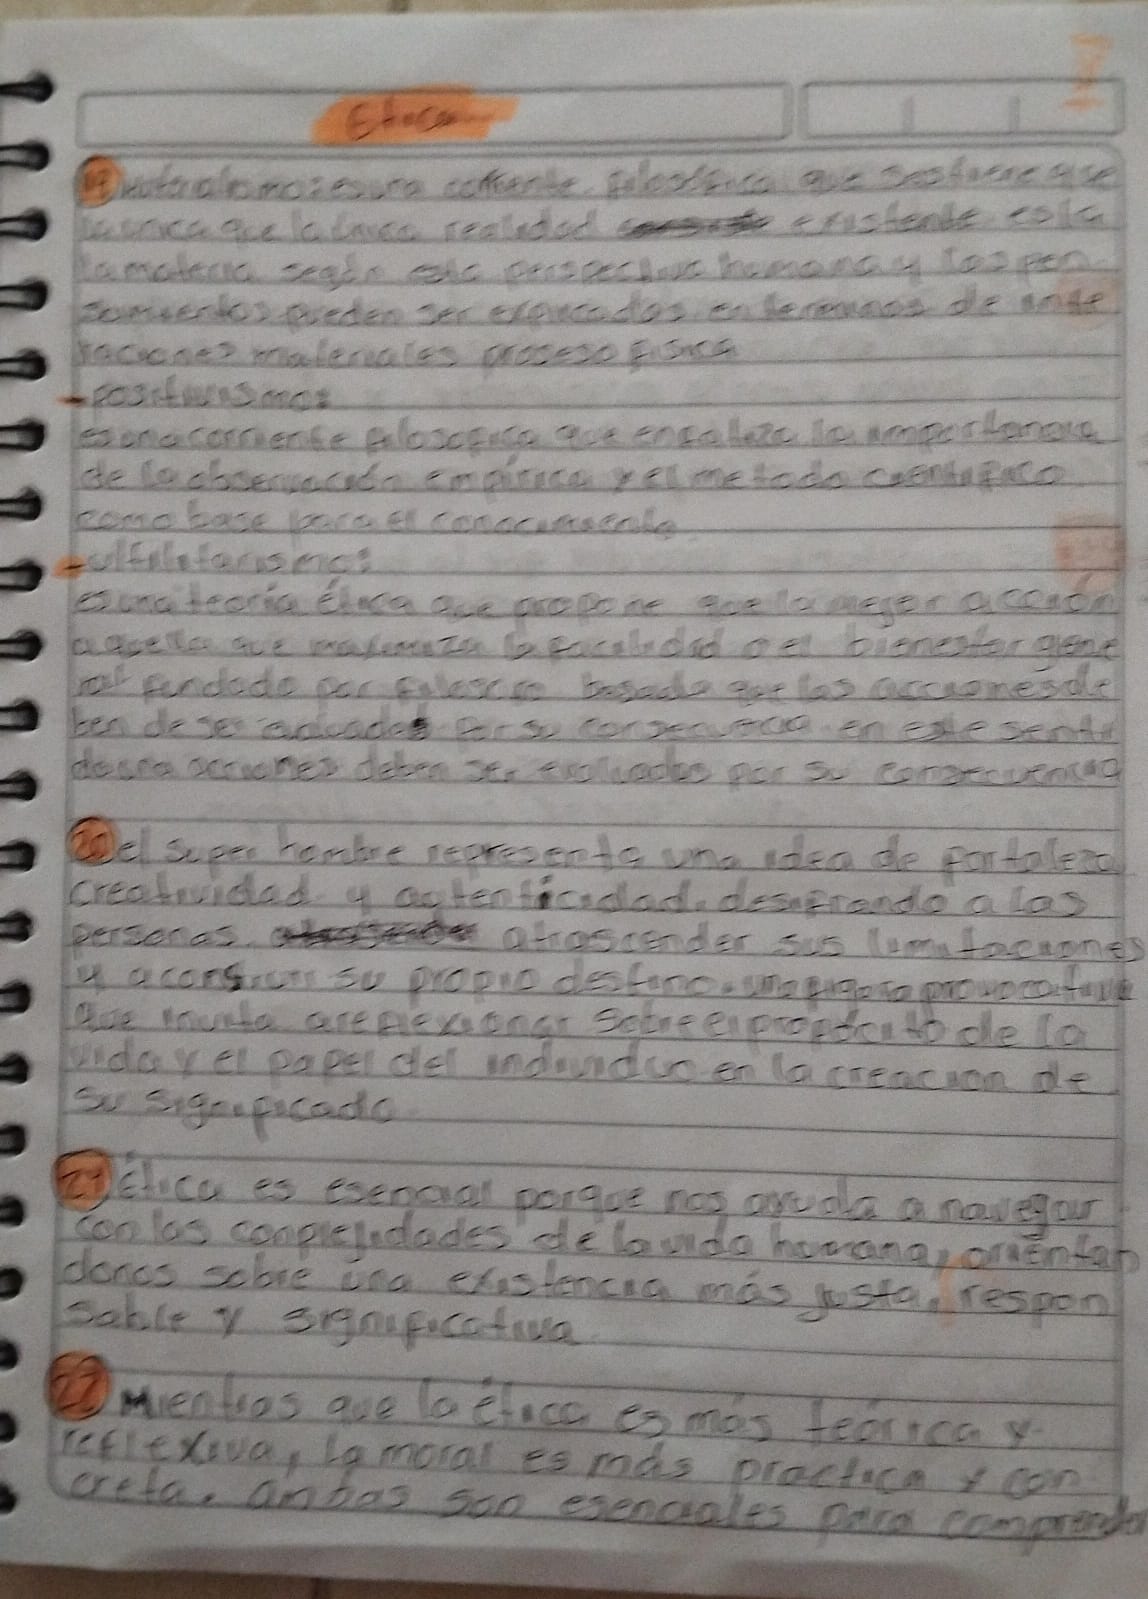 Etica
19 Materialismo: es una corriente filosófica que sostiene que
la unica que la única realidad existente es la
la materia según esta perspectiva humana y los pen
samientos pueden ser explicados en terminos de inte
racciones materiales proseso física
- positivismo:
es una corriente filosófica que enfatiza la importancia
de la observación empírica y el metodo cientifico
como base para el conocimiento
- utilitarismo:
es una teoría ética que propone que la mejor acción
aquella que maximiza la o el bienestar gene
ral fundado por basado que las acciones de
ben de ser por su consecuencia en este senti
do acciones deben ser evaluadas por su consecuencia
20 el super hombre representa una idea de fortaleza
creatividad y autenticidad, desafiando a las
personas, atrascender sus limitaciones
y a construir su propio destino. una figura provocativa
que invita areflexionar sobre el propócito de la
vida y el papel del individuo en la creacion de
su significado
21 ética es esencial porque nos ayuda a navegar
con las conplejidades de la vida humana, orientan
donos sobre una existencia más justa, respon
sable y significativa
22 Mientras que la ética es más teórica y
reflexiva, la moral es más practica y con
creta. anbas son esenciales para comprender